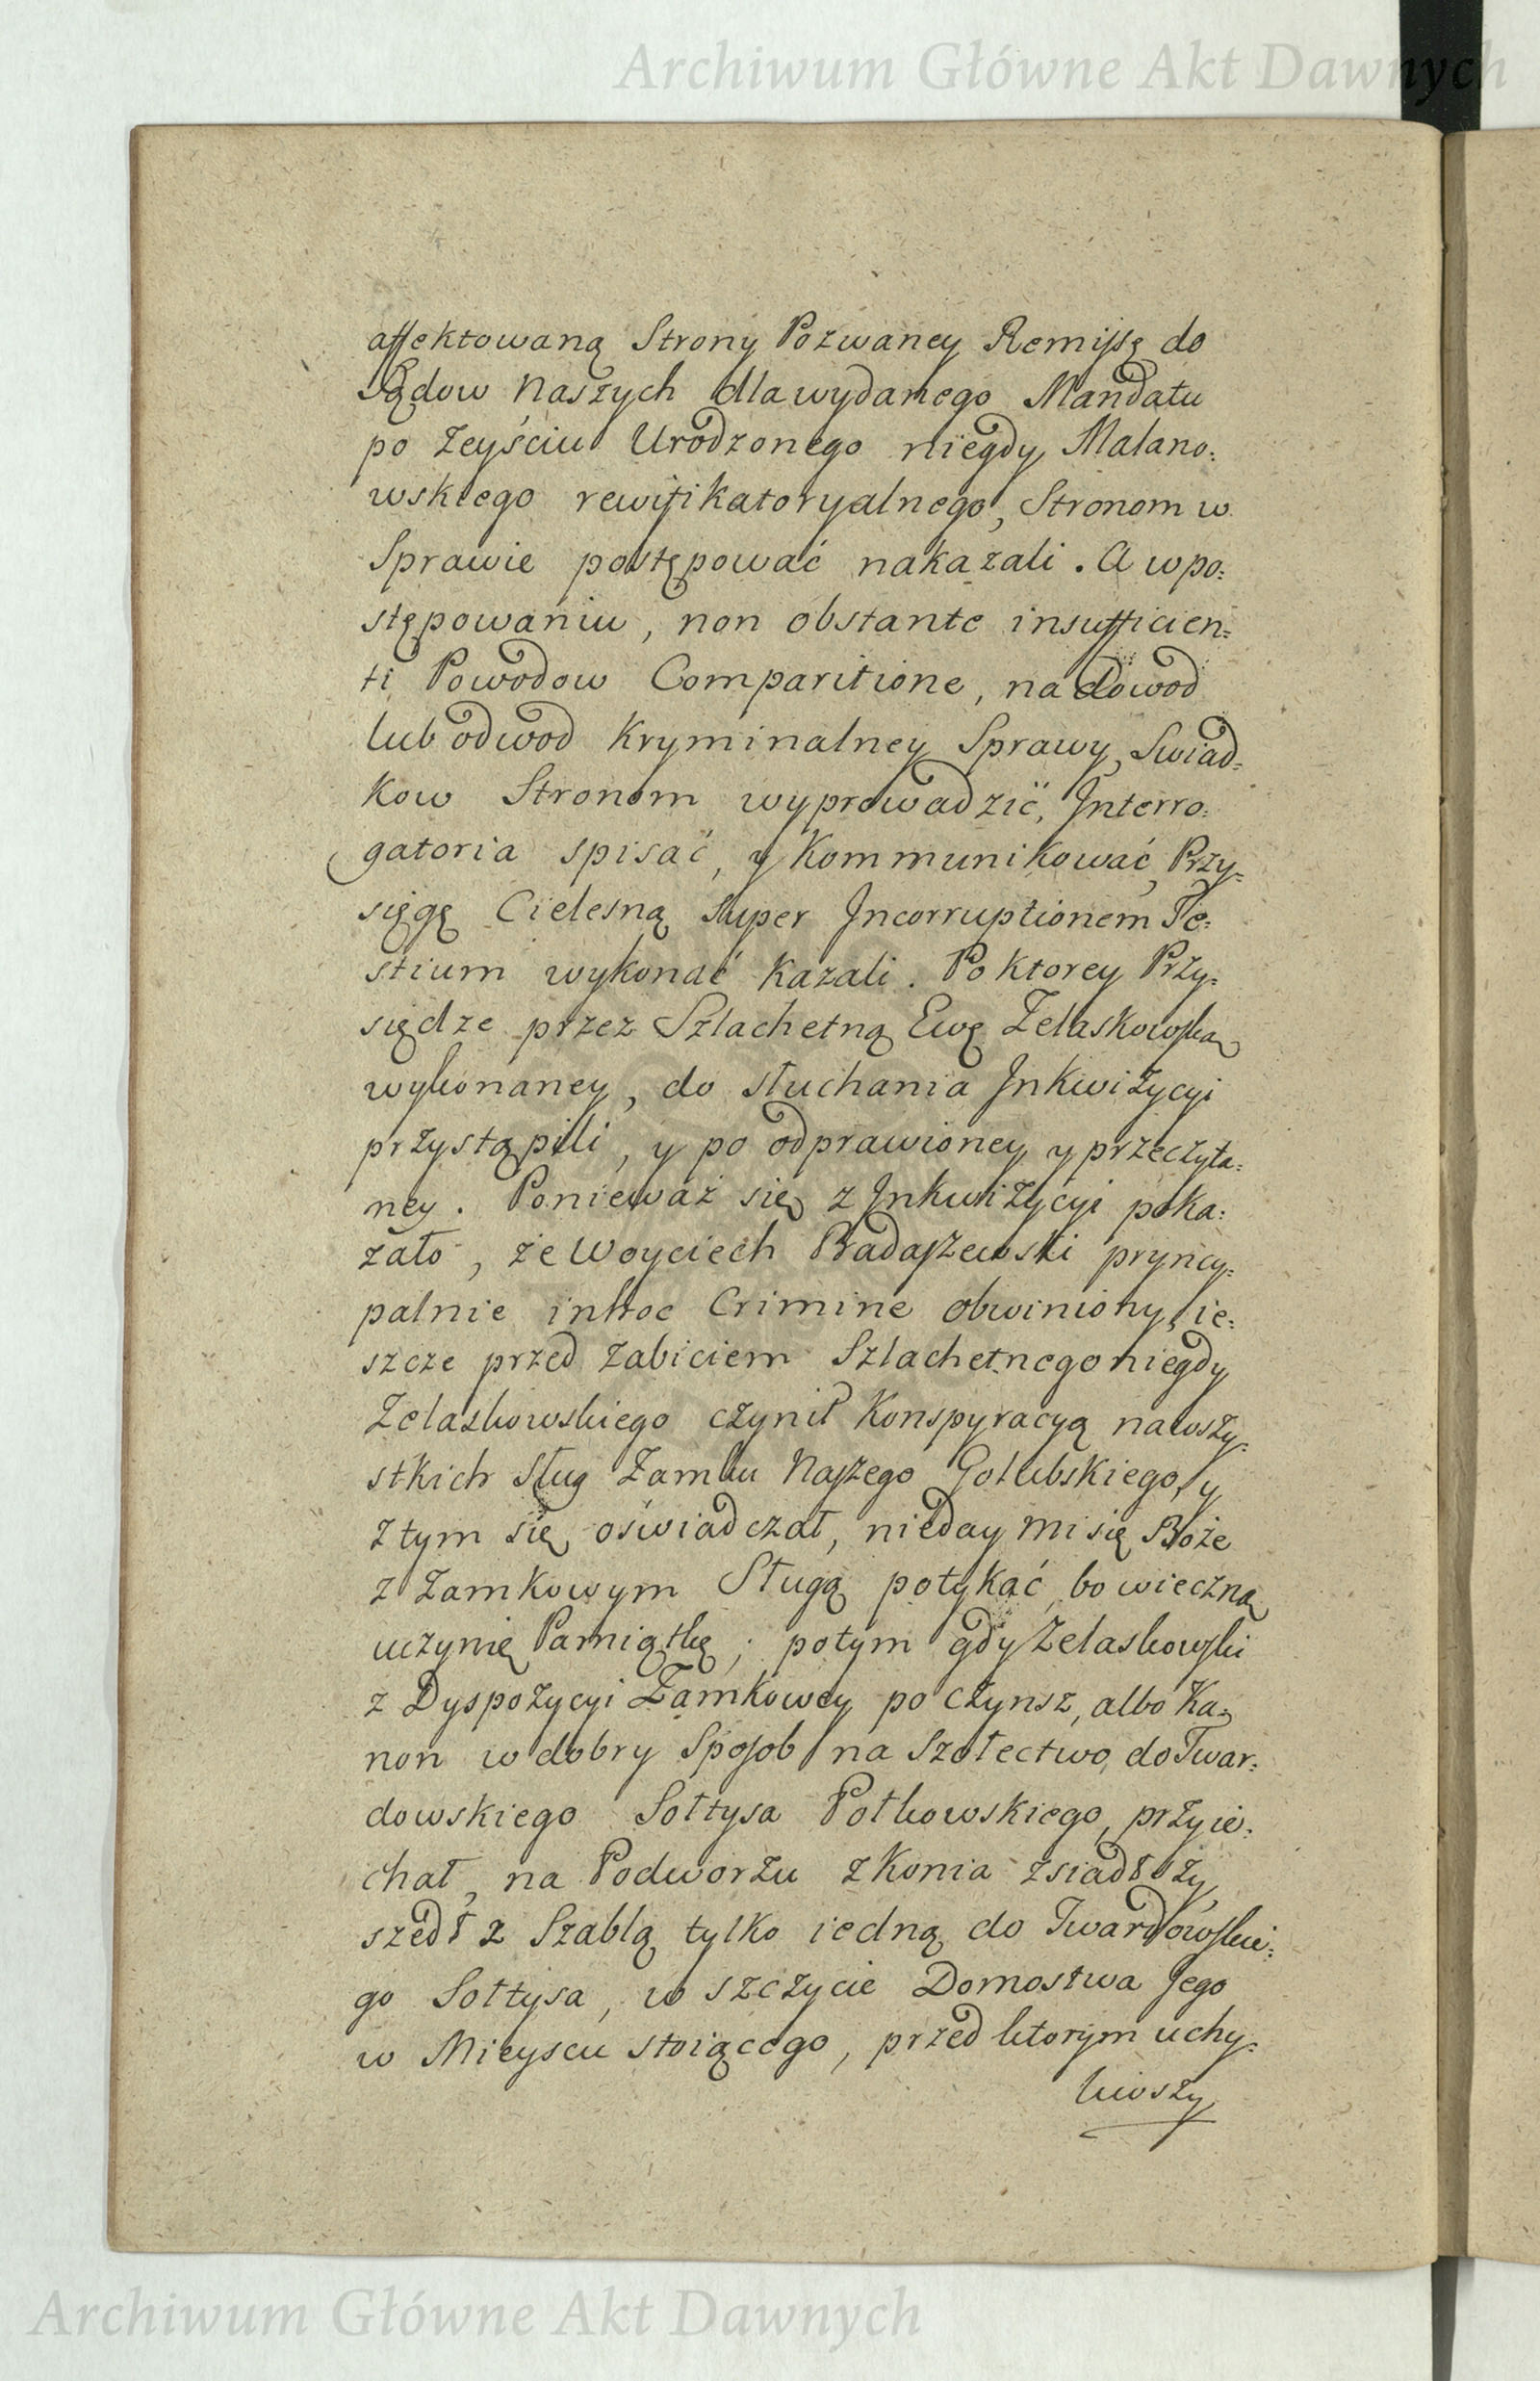 Archiwum Główne Akt Dawnych
affektowaną Strony Pozwaney Remissę do
Sądow Naszych dla wydanego Mandatu
po zeyściu Urodzonego niegdy Malano:
wskiego rewifikatoryalnego, Stronom w
Sprawie postępować nakazali. A wpo:
stępowaniu, non obstante insufficien:
ti Powodow Comparitione, na dowod
lub odwod Kryminalney Sprawy, Swiad:
kow Stronom wyprowadzić, Interro:
gatoria spisać, y Kommunikować, Przy:
sięgę Cielesną super Incorruptionem Te:
stium wykonać kazali. Po ktorey Przy:
siędze przez Szlachetną Ewę Zelaskowską
wykonaney, do słuchania Inkwizycyi
przystąpili, y po odprawioney y przeczyta:
ney. Ponieważ się z Inkwizycyi poka:
zało, że Woyciech Radaszewski pryncy:
palnie in hoc Crimine obwiniony, ie:
szcze przed zabiciem Szlachetnego niegdy
Zelaskowskiego czynił Konspyracyą na wszy:
stkich Sług Zamku Naszego Golubskiego, y
z tym się oświadczał, nieday mi się Boże
z Zamkowym Sługą potykać, bo wieczną
uczynię Pamiątkę; potym gdy Zelaskowski
z Dyspozycyi Zamkowey po czynsz, albo Ka:
non w dobry Sposob na Szołectwo, do Twar:
dowskiego Sołtysa Polkowskiego, przyie:
chał, na Podworzu z Konia zsiadłszy,
szedł z Szablą tylko iedną do Twardowskie:
go Sołtysa, w szczycie Domostwa Jego
w Mieyscu stoiącego, przed ktorym uchy:
liwszy
Archiwum Główne Akt Dawnych